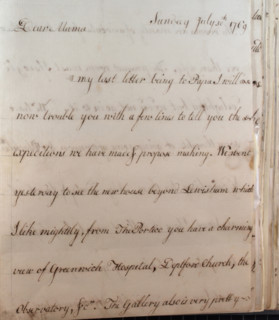 Sunday July 10th 1769
Dear Mama
my last letter being to Papa I will
now trouble you with a few lines to tell you the
expeditions we have made & propose making. We went
yesterday to see the new house beyond Lewisham which
I like mightily, from The Portico you have a charming
view of Greenwich Hospital, Deptford Church, the
Observatory, &c. The Gallery also is very pretty